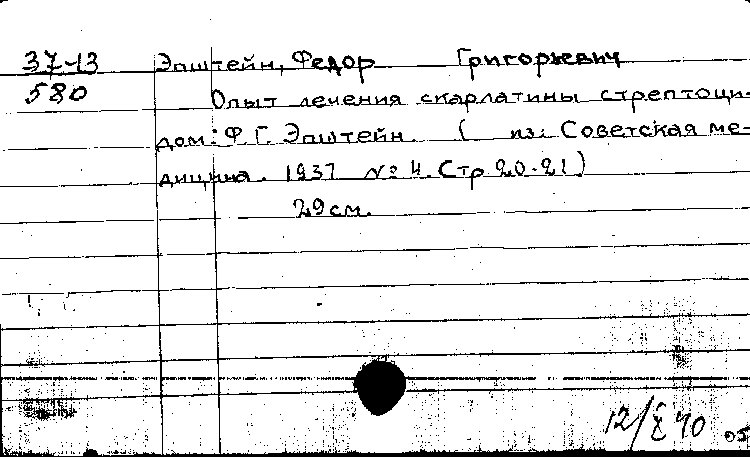 37-13 Эпштейн, Федор Григорьевич
580 Опыт лечения скарлатины стрептоци-
дом: Ф. Г. Эпштейн. (из: Советская ме-
дицина. 1937 № 4. Стр 20-21)
29 см.
12/X 40
05